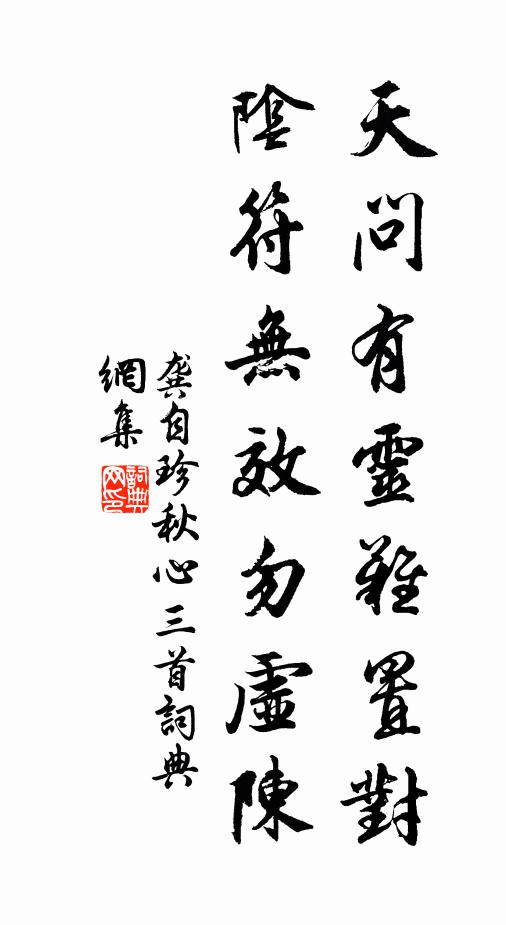 天問有靈難置對
陰符無效勿虛陳
龔自珍秋心三首詞典
網集
詞典
网印